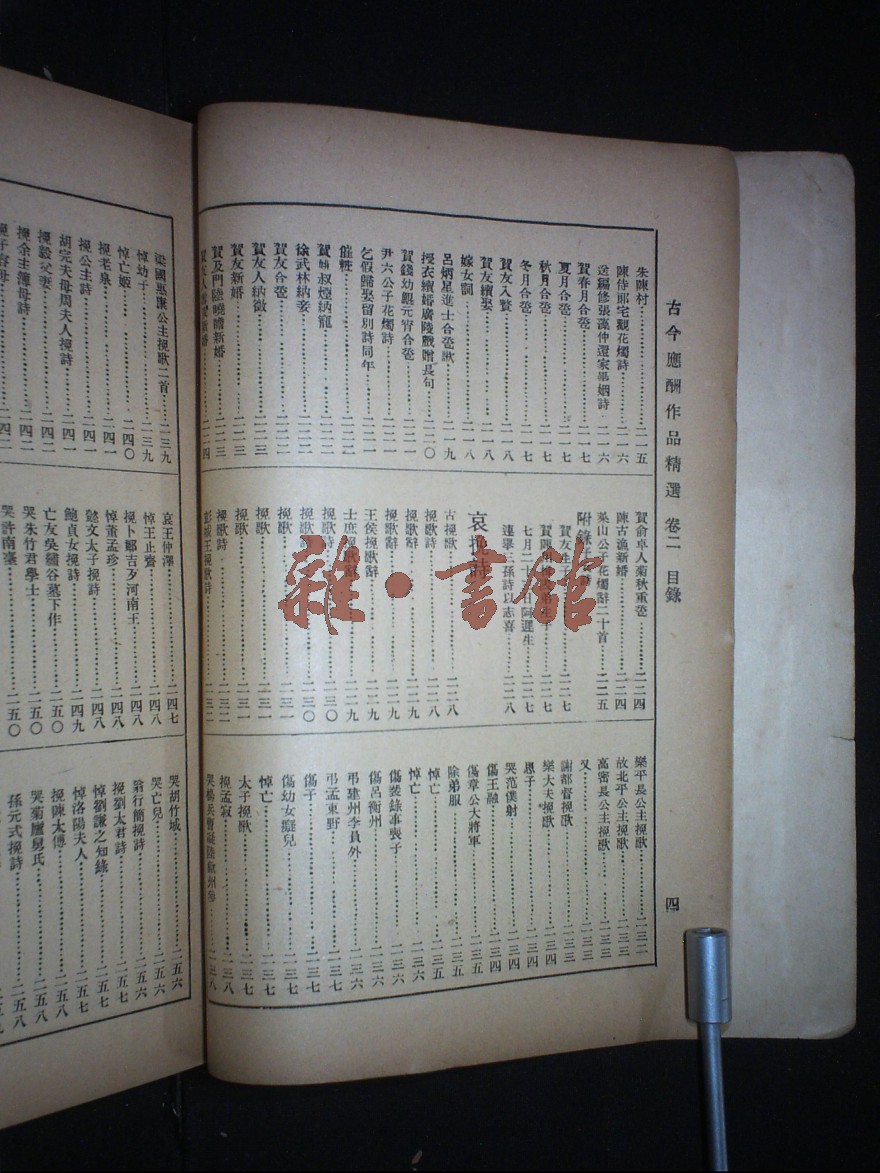 古今應酬作品精選 卷二 目錄
四
朱陳村……二一五
陳侍郎宅觀花燭詩……二一六
送編修張藻仲還家畢姻詩……二一六
賀春月合卺……二一七
夏月合卺……二一七
秋月合卺……二一七
冬月合卺……二一七
賀友入贅……二一八
賀友續娶……二一八
嫁女詞……二一八
呂炳星進士合卺歌……二一九
授衣續婚廣陵戲贈長句……二二〇
賀錢幼鯤元宵合卺……二二一
尹六公子花燭詩……二二一
乞假歸娶留別詩同年……二二一
催粧……二二二
賀 叔煙納寵……二二二
徐武林納妾……二二二
賀友合卺……二二三
賀友人納徵……二二三
賀友新婚……二二三
賀及門陸曉瞻新婚……二二三
賀俞卓人菊秋重卺……二二四
陳古漁新婚……二二四
梁山公子花燭辭二十首……二二五
附錄
賀友生……二二七
七月二十 日阿遲生……二二七
連舉三孫詩以志喜……二二八
哀挽詩
古挽歌……二二八
挽歌詩……二二八
挽歌辭……二二九
挽歌辭……二二九
王侯挽歌辭……二二九
士庶挽歌辭……二二九
挽歌詩……二三〇
挽歌詩……二三〇
挽歌……二三一
挽歌……二三一
挽歌……二三一
挽歌詩……二三二
彭城王挽歌詩……二三二
樂平長公主挽歌……二三二
故北平公主挽歌……二三三
高密長公主挽歌……二三三
又……二三三
謝都督挽歌……二三三
樂大夫挽歌……二三四
思子……二三四
哭范僕射……二三四
傷王融……二三四
傷韋公大將軍……二三五
除弟服……二三五
悼亡……二三五
悼亡……二三六
傷裴錄事喪子……二三六
傷呂衡州……二三六
弔建州李員外……二三六
弔孟東野……二三七
傷子……二三七
傷幼女癡兒……二三七
悼亡……二三七
太子挽歌……二三七
挽孟寂……二三八
哭楊兵曹凝陸歙州參……二三八
梁國惠康公主挽歌二首……二三九
悼幼子……二三九
悼亡姬……二四〇
挽老泉……二四一
挽公主詩……二四一
胡完夫母周夫人挽詩……二四一
挽毅父妻……二四二
挽余主簿母詩……二四二
哀王仲澤……二四七
悼王止齋……二四八
挽卜鄰吉歹河南王……二四八
悼董孟珍……二四八
懿文太子挽詩……二四八
鮑貞女挽詩……二四九
亡友吳繡谷墓下作……二五〇
哭朱竹君學士……二五〇
哭許南臺……二五〇
哭胡竹城……二五六
哭亡兒……二五六
翁行簡挽詩……二五六
挽劉太君詩……二五七
悼劉謙之知錄……二五七
悼洛陽夫人……二五七
挽陳太傅……二五八
哭菊廬舅氏……二五八
孫元式挽詩……二五八
雜·書館